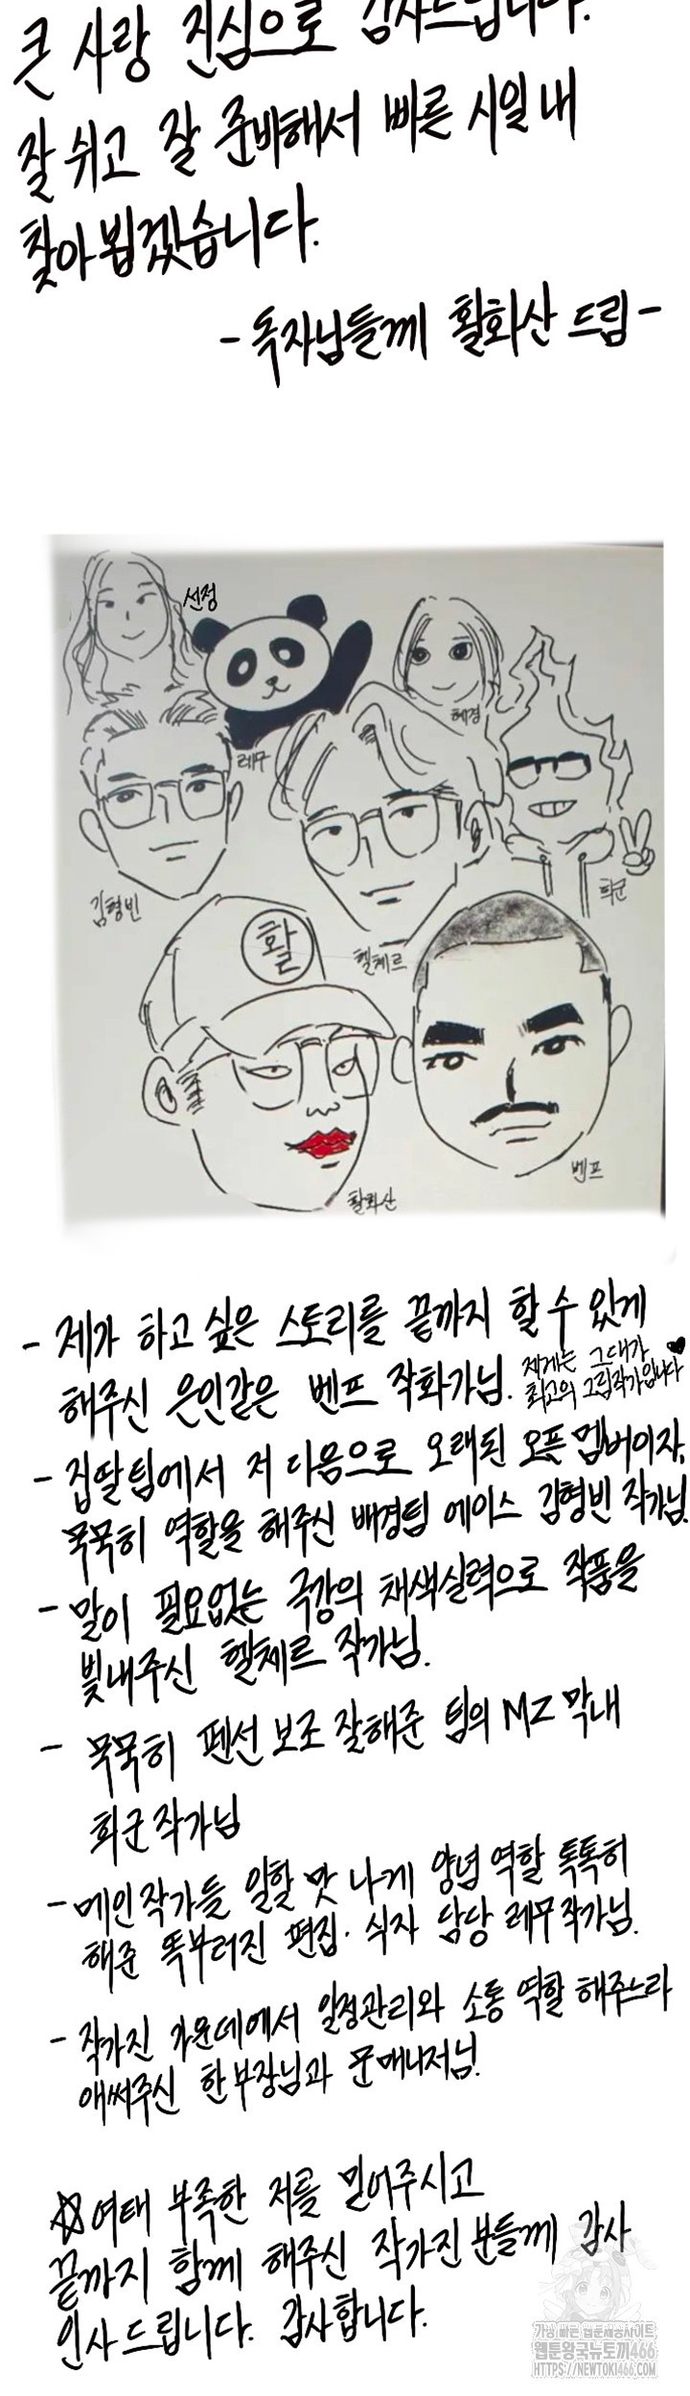 큰 사랑 진심으로 감사드립니다.
잘 쉬고 잘 준비해서 빠른 시일 내
찾아 뵙겠습니다.
- 독자님들께 활화산 드림 -
선정
레무
혜정
김형빈
헬체르
희군
활
활화산
벤프
- 제가 하고 싶은 스토리를 끝까지 할 수 있게
해주신 은인같은 벤프 작화가님. 제게는 그대가
최고의 그림작가입니다♥
- 집딸팀에서 저 다음으로 오래된 오픈 멤버이자,
묵묵히 역할을 해주신 배경팀 에이스 김형빈 작가님.
- 말이 필요없는 극강의 채색실력으로 작품을
빛내주신 헬체르 작가님.
- 묵묵히 펜선 보조 잘해준 팀의 MZ 막내
희군 작가님
- 메인작가들 일할 맛 나게 양념 역할 톡톡히
해준 똑부러진 편집·식자 담당 레무 작가님.
- 작가진 가운데에서 일정관리와 소통 역할 해주느라
애써주신 한부장님과 문매니저님.
☆여태 부족한 저를 믿어주시고
끝까지 함께 해주신 작가진분들께 감사
인사드립니다. 감사합니다.
가장 빠른 웹툰제공사이트
웹툰왕국뉴토끼466
HTTPS://NEWTOKI466.COM